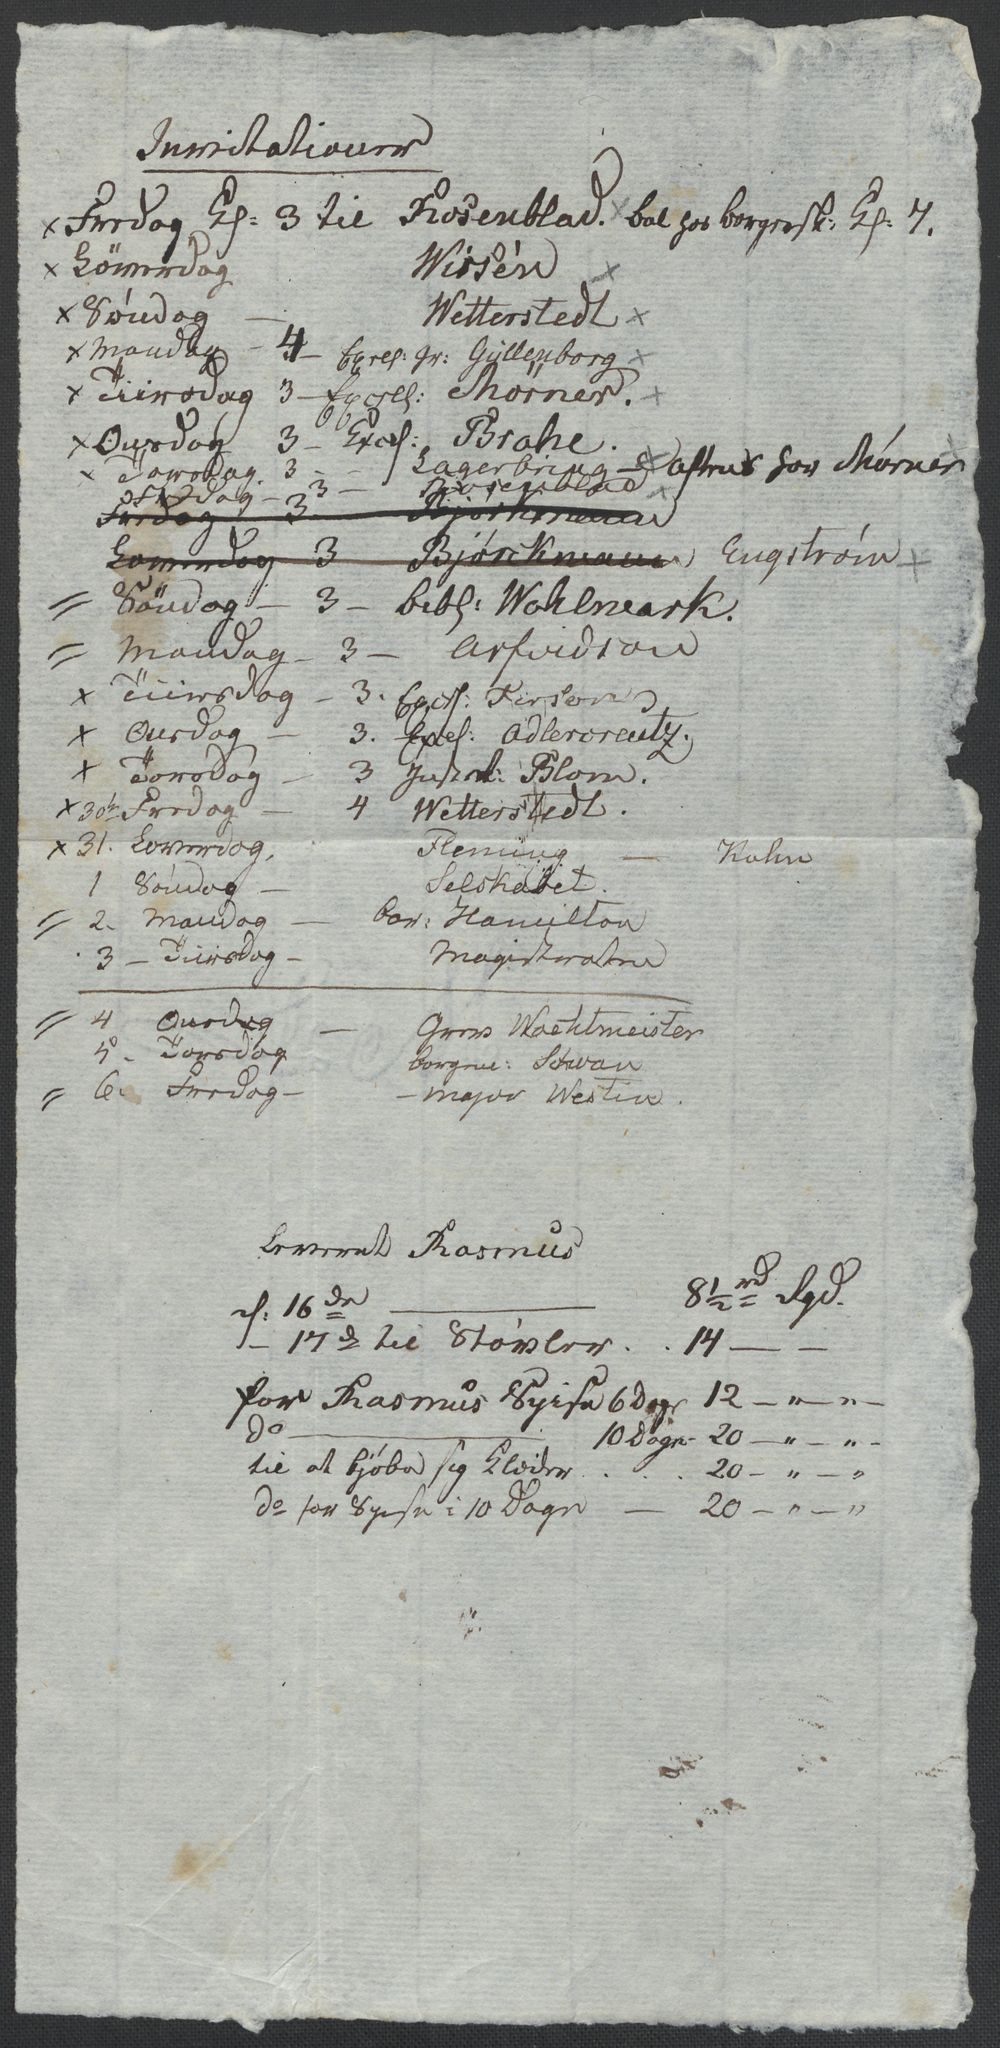 Invitationer
x Fredag Kl: 3 til Rosenblad. x bal hos borgersk: Kl: 7.
x Löverdag Wirsén x
x Söndag — Wetterstedt x
x Mandag - 4 — Excel: Gr: Gyllenborg x
x Tiirsdag 3 — Excell: Mörner. x
x Onsdag 3 — Excel: Brahe.
x Torsdag. 3 - - Lagerbring — x aften hos Mörner
Fredag — 3 — Rosenblad x
Fredag 3 Björkmann
Löverdag 3 Björckmann Engström x
// Söndag — 3 — bibl: Wahlmark.
// Mandag — 3 — Arfvidson
x Tiirsdag — 3. Excel: Fersen
x Onsdag — 3. Excel: Adlercreutz.
x Torsdag — 3 Justr: Blom.
x 30te Fredag — 4 Wetterstedt.
x 31. Löverdag. Fleming — Kahn
1 Söndag — Selskabet.
// 2. Mandag — bar: Hamilton
3 — Tiirsdag — Magistraten
// 4 Onsdag — Grev Wachtmeister
5. Torsdag borgem: Swan
// 6. Fredag — — major Westin.
Leveret Rasmus
d: 16de — 8½ rd Rgd.
— 17de til Stövler . . 14 — —
for Rasmus Spise 6 Dage 12 — " — " —
do — 10 Dage - 20 — " — " -
til at kjöbe sig Klæder . . . . 20 — " — "
do for Spise i 10 Dage — 20 — " — "